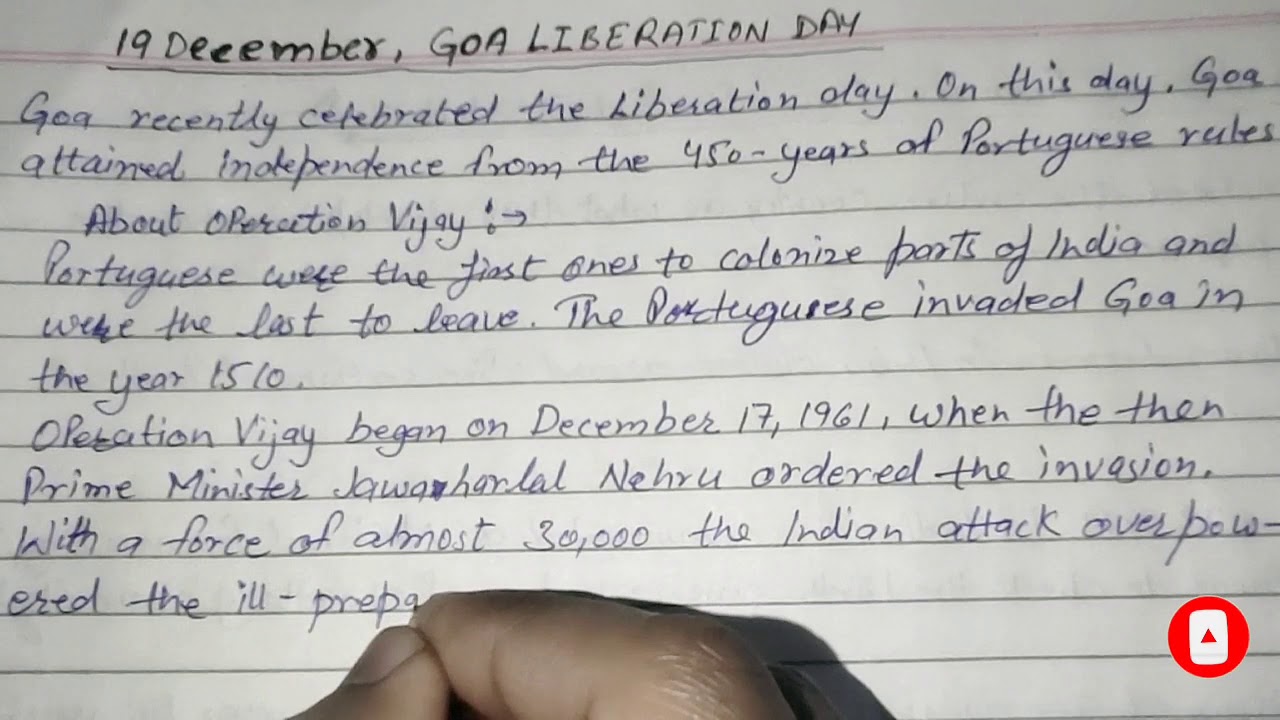 19 December, GOA LIBERATION DAY
Goa recently celebrated the Liberation day. On this day, Goa
attained independence from the 450-years of Portuguese rules
About Operation Vijay :→
Portuguese were the first ones to colonize parts of India and
were the last to leave. The Portugurese invaded Goa in
the year 1510.
Operation Vijay began on December 17, 1961, when the then
Prime Minister Jawarharlal Nehru ordered the invasion.
With a force of almost 30,000 the Indian attack overpow-
ered the ill-prepa